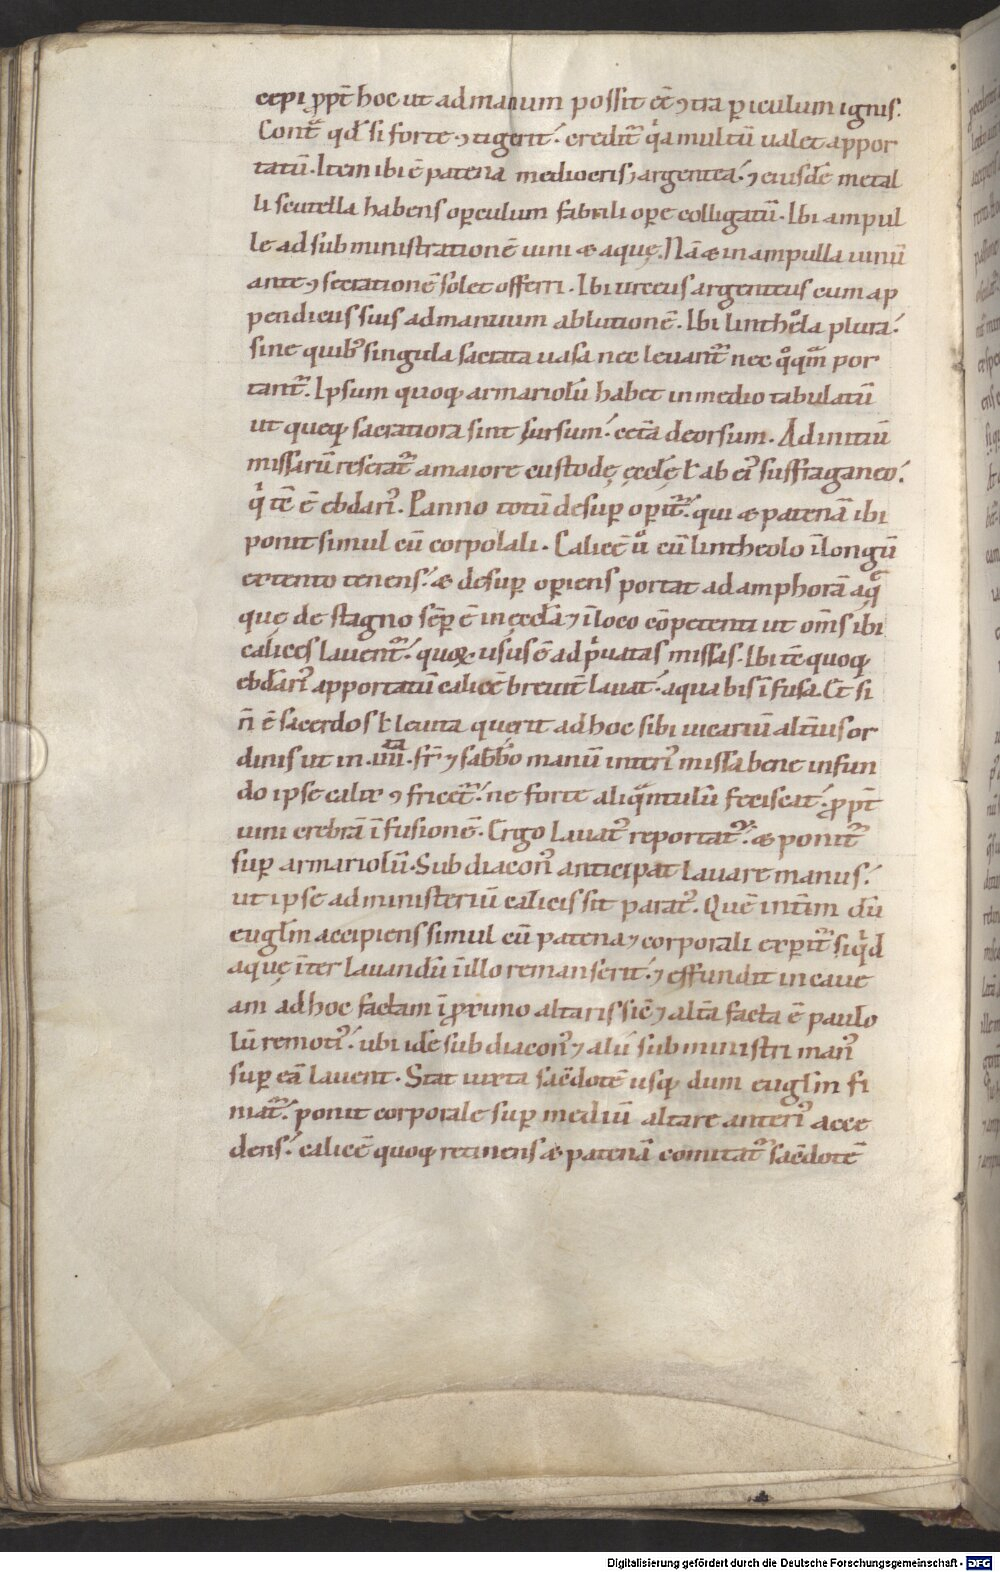 cepi ꝓpt̄ hoc ut ad manum possit eē ꝯtra ꝑiculum ignis.
Cont̄ qd̄ si forte ꝯtigerit. credit᷑ qͥa multū ualet appor
tatū. Item ibi ē patena mediocris ⁊ argentea. ⁊ eiusdē metal
li scutella habens oꝑculum fabrili oꝑe colligatū. Ibi ampul
lę ad subministrationē uini & aquę. Nā & in ampulla uinū
ante ꝯsecrationē solet offerri. Ibi urceus argenteus cum ap
pendicus suis ad manuum ablutionē. Ibi lintheola plura.
sine quibꝰ singula sacrata uasa nec leuant᷑ nec qͦqᷓm por
tant᷑. Ipsum quoqꝫ armariolū habet in medio tabulatū
ut queqꝫ sacratiora sint sursum. cet̄a deorsum. Ad initiū
missarū reserat᷑ a maiore custodę ęcclę̄ ł ab eiꝰ suffraganeo.
qͥ tc̄ ē ebdarꝰ. Panno totū desuꝑ oꝑit᷑. qui & patenā ibi
ponit simul cū corpolali. Calicē uͦ cū lintheolo ī longū
extento tenens. & desuꝑ oꝑiens portat ad amphorā aqᷓ
quę de stagno sēꝑ ē in ęccła ⁊ ī loco cōpetenti ut om̄s ibi
calices lauent᷑. quoꝝ usus ē ad pͥuatas missas. Ibi tc̄ quoqꝫ
ebdarꝰ apportatū calicē breuit̄ lauat. aqua bis īfusa. Et si
n̄ ē sacerdos ł leuita querit ad hoc sibi uicariū altīus or
dinis ut in .iiii.ta fr̄ ⁊ sabb̄o manū interꝰ missa bene infun
do ipse calix ꝯfricet᷑. ne forte aliqᷓntulū feciscat. ꝓpt̄
uini crebrā īfusionē. Ergo lauatꝰ reportat᷑. & ponit᷑
suꝑ armariolū. Subdiaconꝰ anticipat lauare manus.
ut ipse ad ministeriū calicis sit paratꝰ. Quē int̄im dū
euglm̄ accipiens simul cū patena ⁊ corporali exꝑit᷑ siqͥd
aquę īter lauandū ī illo remanserit. ⁊ effundit in caue
am ad hoc factam ī ꝓximo altaris sic̄ ⁊ alt̄a facta ē paulo
lū remotiꝰ. ubi idē subdiaconꝰ ⁊ alii subministri manꝰ
suꝑ eā lauent. Stat iuxta sac̄dotē usqꝫ dum euglm̄ fi
niat᷑. ponit corporale suꝑ mediū altare anterꝰ acce
dens. calicē quoqꝫ retinens & patenā comitat᷑ sac̄dotē
Digitalisierung gefördert durch die Deutsche Forschungsgemeinschaft - DFG